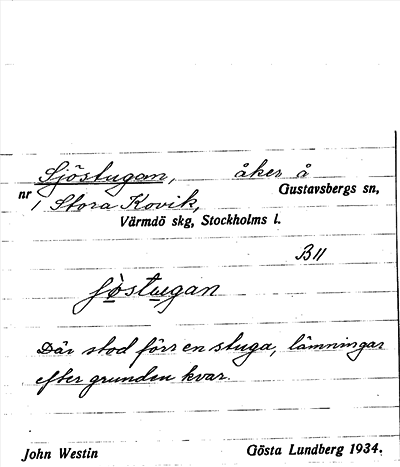 Sjöstugan, åker å
nr Gustavsbergs sn,
1 Stora Kovik,
Värmdö skg, Stockholms l.
B 11
ʃös̀tu̱gan
Där stod förr en stuga, lämningar
efter grunden kvar.
John Westin Gösta Lundberg 1934.